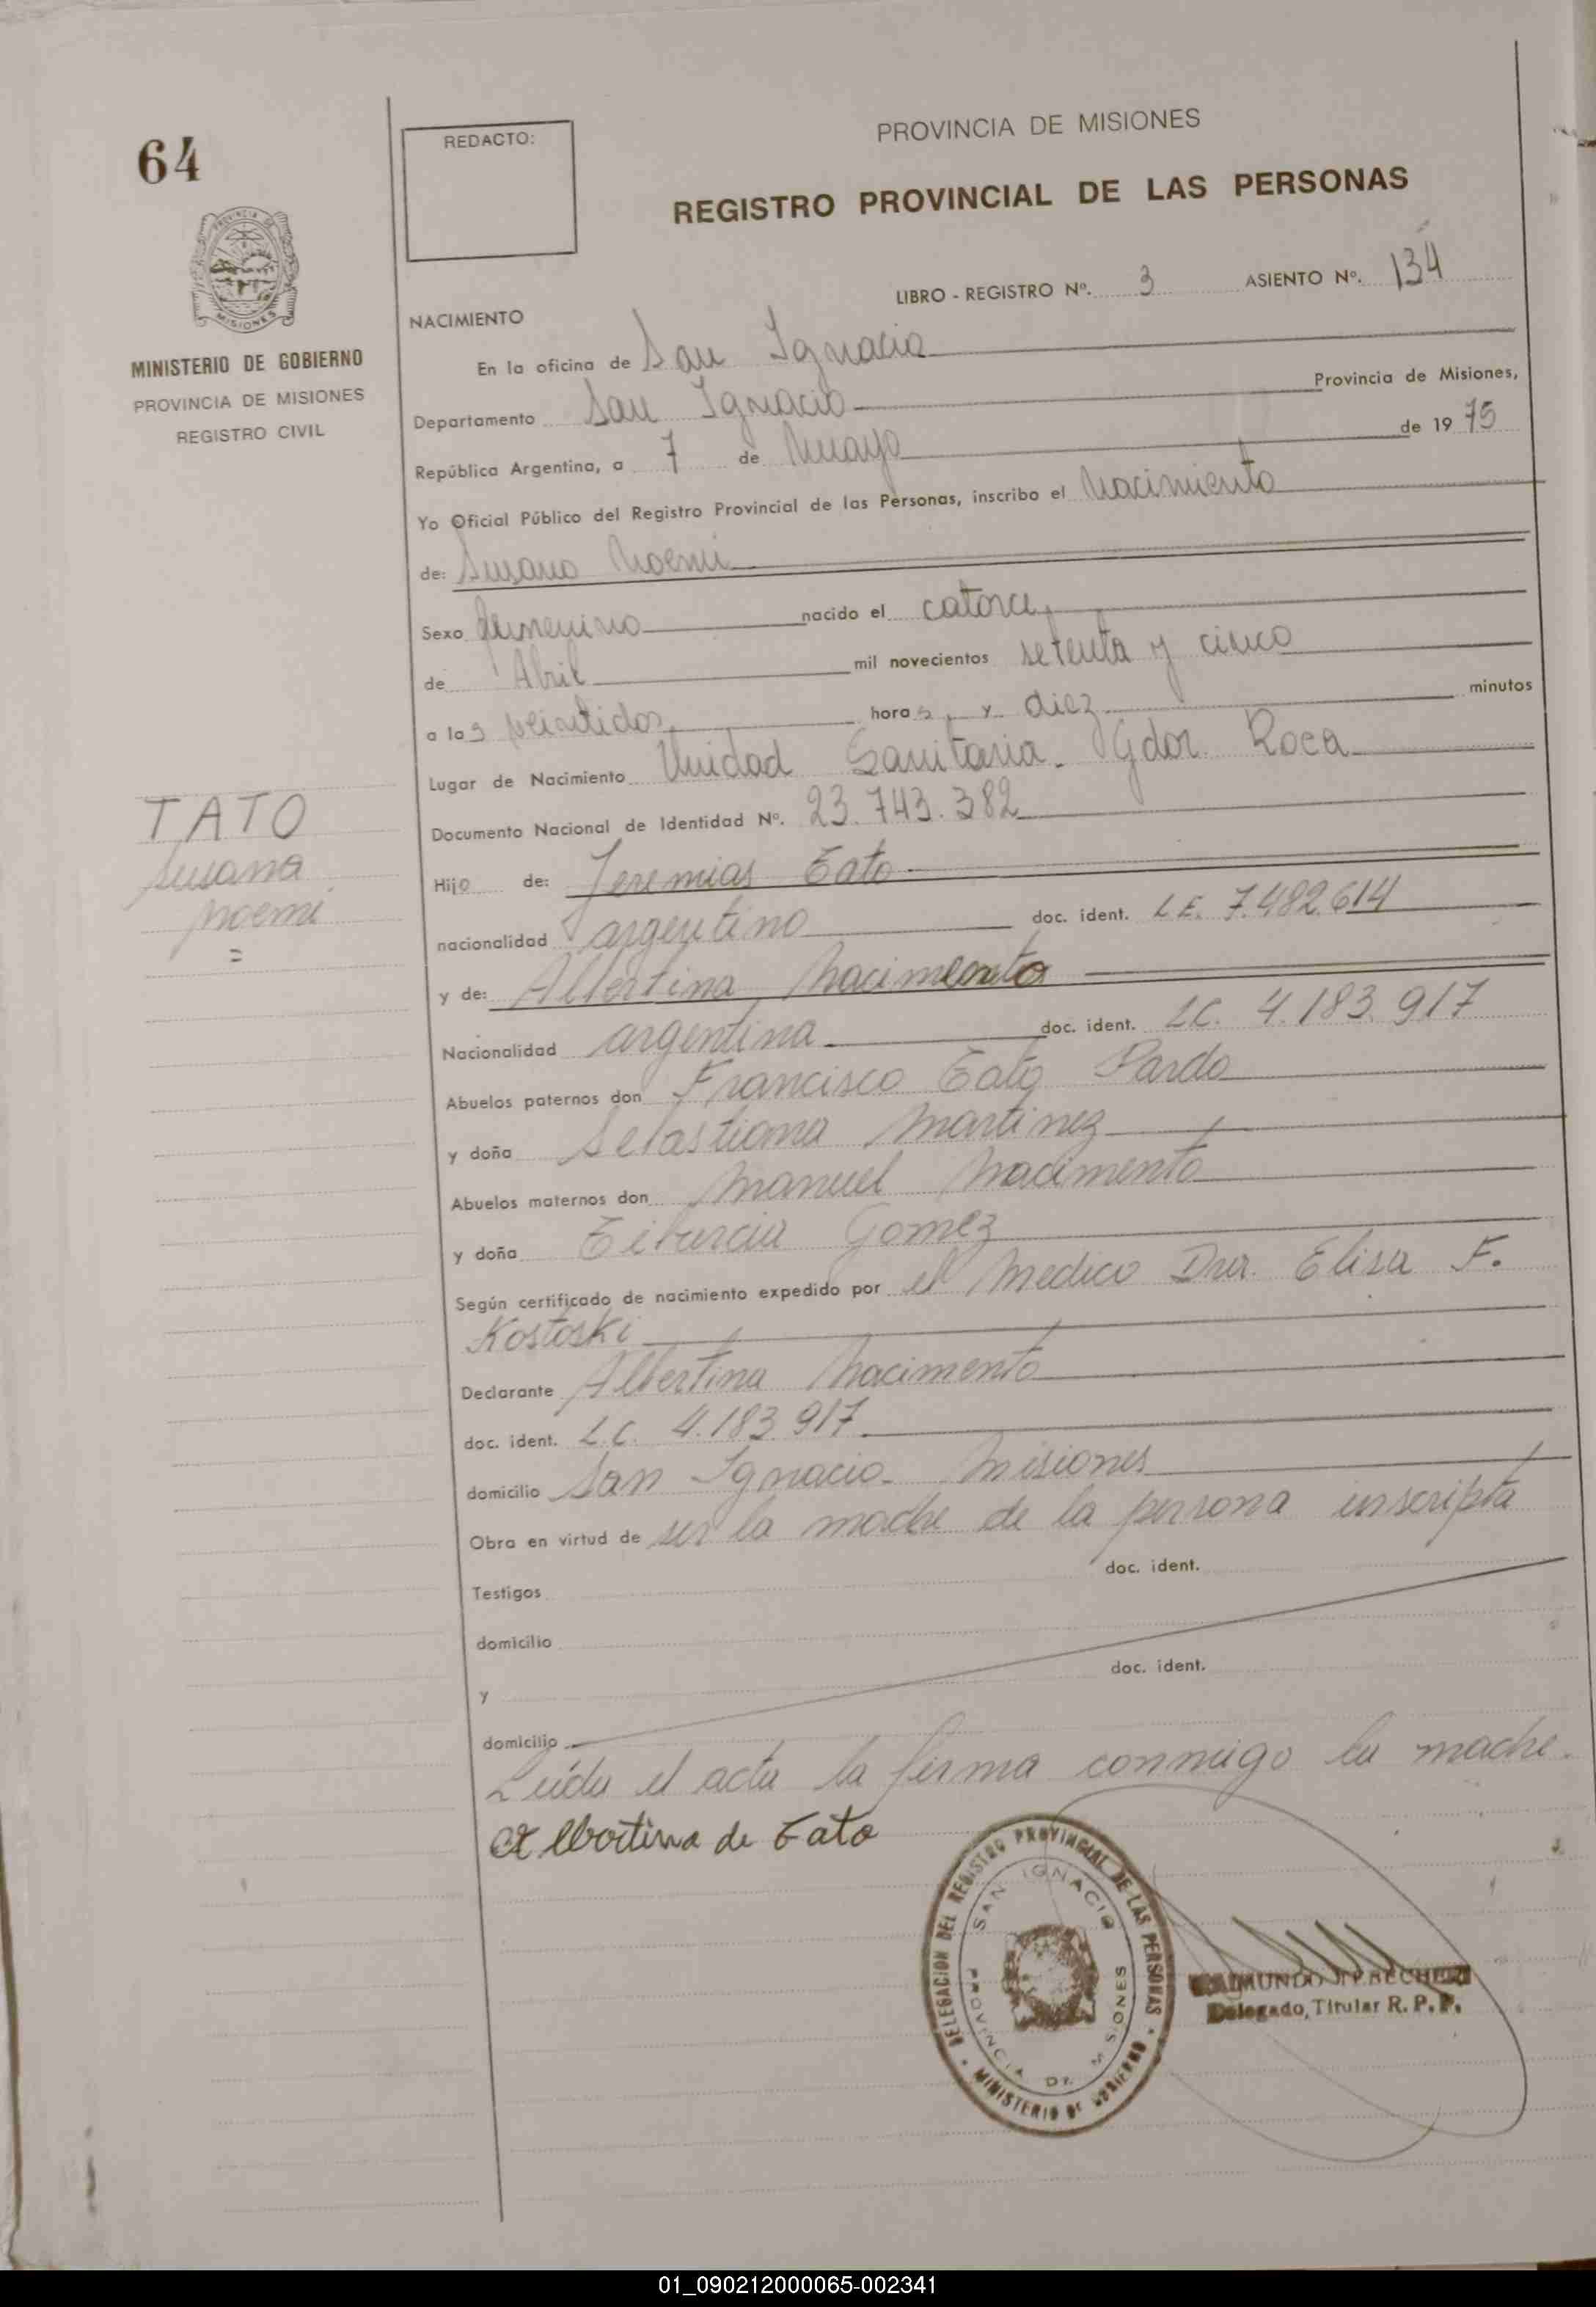 64
REDACTO:
PROVINCIA DE MISIONES
REGISTRO PROVINCIAL DE LAS PERSONAS
LIBRO - REGISTRO Nº. 3 ASIENTO Nº. 134
PROVINCIA DE MISIONES
MINISTERIO DE GOBIERNO
PROVINCIA DE MISIONES
REGISTRO CIVIL
NACIMIENTO
En la oficina de San Ignacio
Departamento San Ignacio Provincia de Misiones,
República Argentina, a 7 de Mayo de 1975
Yo Oficial Público del Registro Provincial de las Personas, inscribo el Nacimiento
de: Susana Noemi
Sexo femenino nacido el catorce,
de Abril mil novecientos setenta y cinco
a las veintidos horas, y diez minutos
Lugar de Nacimiento Unidad Sanitaria - Gdor. Roca
Documento Nacional de Identidad Nº. 23.743.382
TATO
Susana
Noemi
=
Hijo de: Jeremias Tato
nacionalidad argentino doc. ident. L.E. 7.482.614
y de: Albertina Nacimento
Nacionalidad argentina doc. ident. L.C. 4.183.917
Abuelos paternos don Francisco Tato Pardo
y doña Sebastiana Martinez
Abuelos maternos don Manuel Nacimento
y doña Tiburcia Gomez
Según certificado de nacimiento expedido por el Medico Dra. Elisa F.
Kostoski
Declarante Albertina Nacimento
doc. ident. L.C. 4.183.917
domicilio San Ignacio - Misiones
Obra en virtud de ser la madre de la persona inscripta
Testigos doc. ident.
domicilio
y doc. ident.
domicilio
Leida el acta la firma conmigo la madre.
Albertina de Tato
DELEGACION DEL REGISTRO PROVINCIAL DE LAS PERSONAS
SAN IGNACIO
PROVINCIA DE MISIONES
MINISTERIO DE GOBIERNO
RAIMUNDO
Delegado Titular R. P. P.
01_090212000065-002341